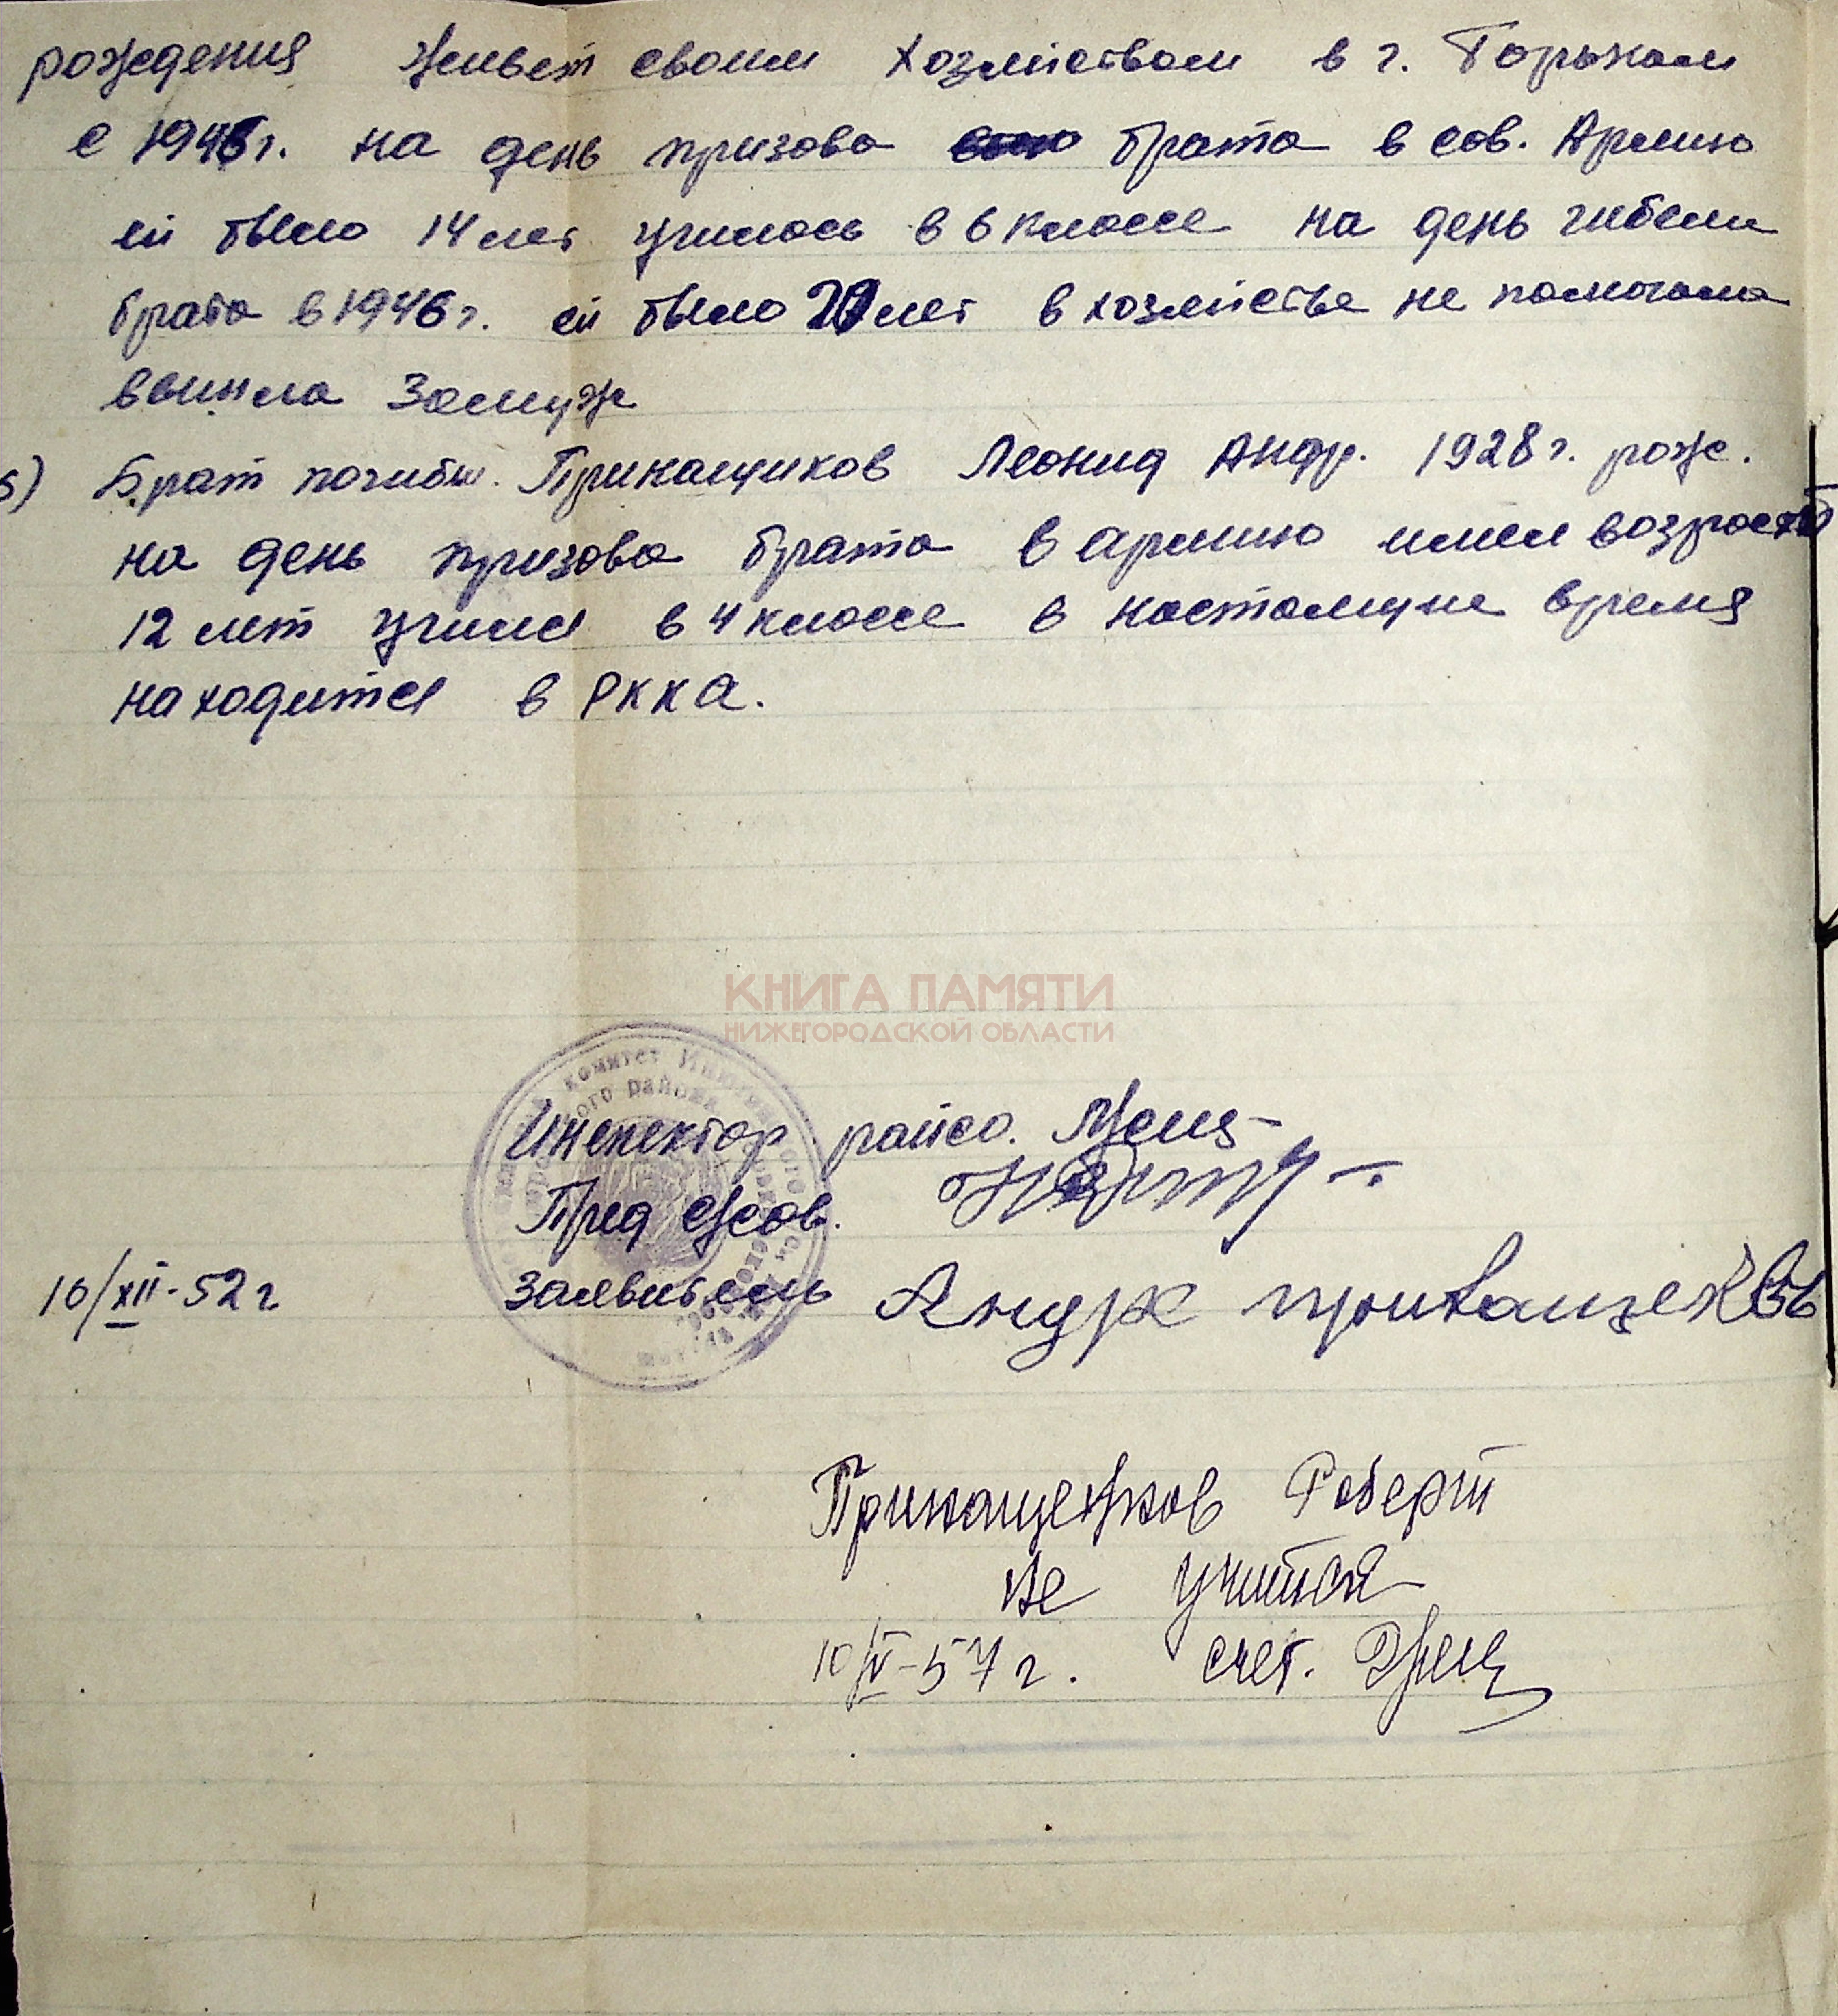 рождения живет своим хозяйством в г. Горьком
с 1946 г. на день призова брата в сов. Армию
ей было 14 лет училась в 6 классе на день гибели
брата в 1946 г. ей было 20 лет в хозяйстве не помогала
вышла замуж
5) Брат погибш. Приканщиков Леонид Андр. 1928 г. рож.
на день призова брата в армию имел возраст
12 лет училс в 4 классе в настоящие время
находится в РККА.
КНИГА ПАМЯТИ
НИЖЕГОРОДСКОЙ ОБЛАСТИ
комитет
ого района
Инспектор райсо.
Пред с/сов.
10/XII-52 г заявитель Андр
Роберт
не учится
10/V-57 г. счет.